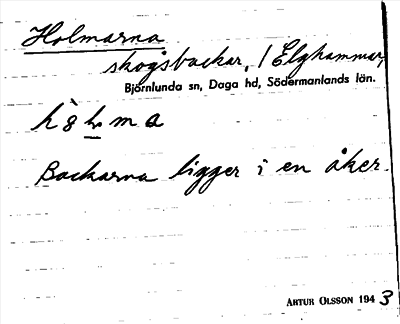 Holmarna
skogsbackar, / Elghammar,
Björnlunda sn, Daga hd, Södermanlands län.
Backarna ligger i en åker.
ARTUR OLSSON 1943